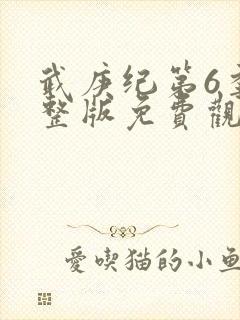 武庚纪第6季
整版免費觀
愛喫猫的小魚